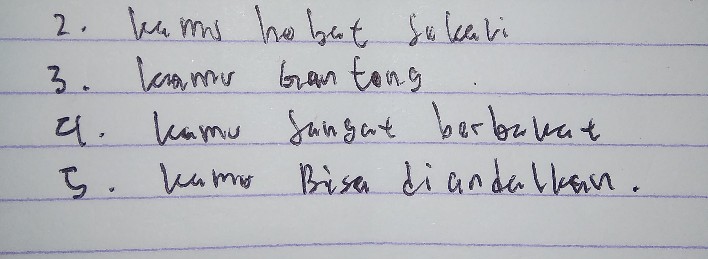 2. kamu hebat sekali
3. kamu ganteng
4. kamu sangat berbakat
5. kamu Bisa diandalkan.